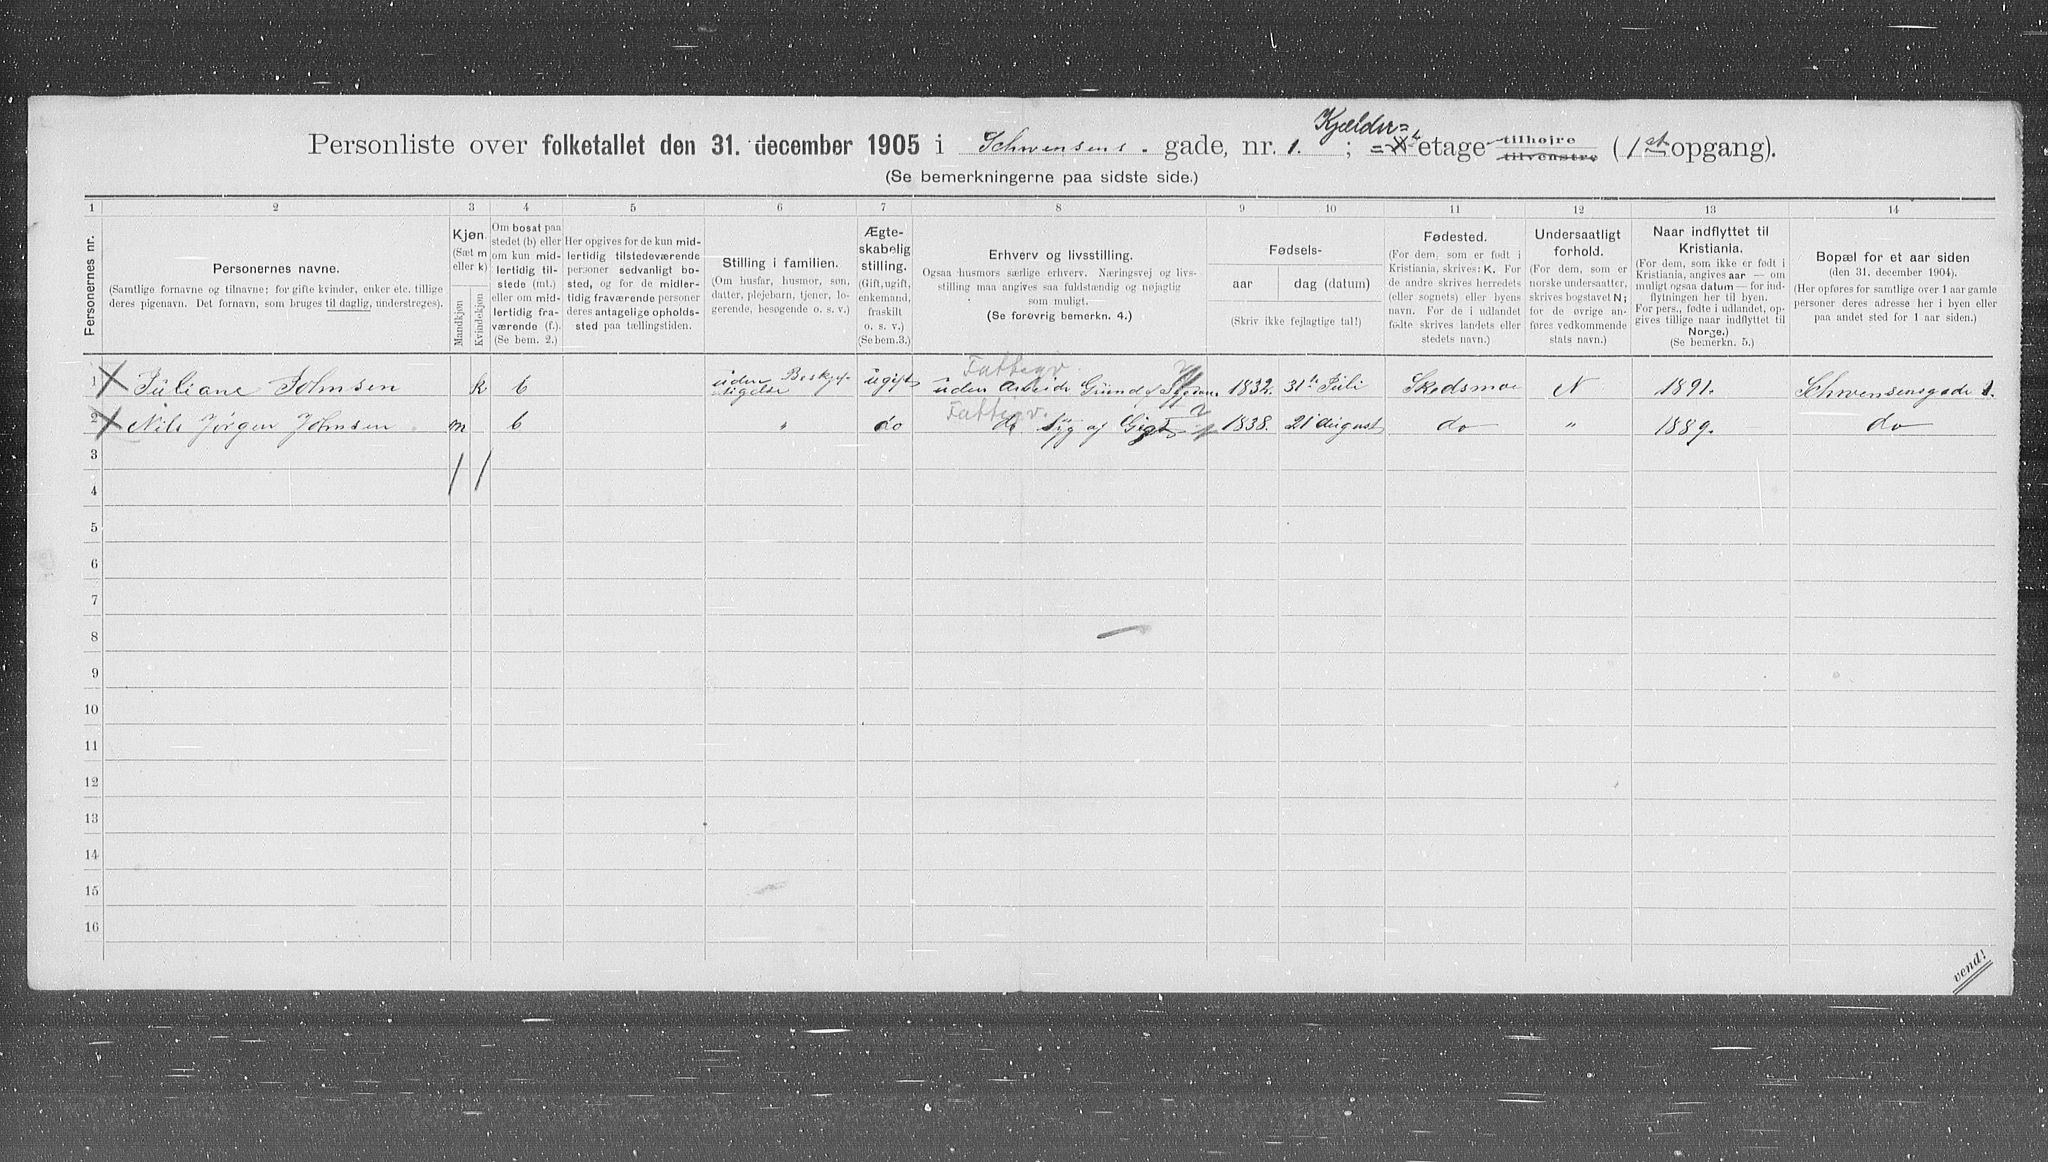 Personliste over folketallet den 31. december 1905 i Schwensens gade, nr. 1. ; Kjelder= etage tilhøjre tilvenstre (1st opgang).
(Se bemerkningerne paa sidste side.)
1 2 3 4 5 6 7 8 9 10 11 12 13 14
Personernes nr.
Personernes navne.
(Samtlige fornavne og tilnavne; for gifte kvinder, enker etc. tillige
deres pigenavn. Det fornavn, som bruges til daglig, understreges).
Kjøn.
(Sæt m
eller k)
Mandkjøn
Kvindekjøn
Om bosat paa
stedet (b) eller
om kun mid-
lertidig til-
stede (mt.)
eller om mid-
lertidig fra-
værende (f.).
(Se bem. 2.)
Her opgives for de kun mid-
lertidig tilstedeværende
personer sedvanligt bo-
sted, og for de midler-
tidig fraværende personer
deres antagelige opholds-
sted paa tællingstiden.
Stilling i familien.
(Om husfar, husmor, søn,
datter, plejebarn, tjener, lo-
gerende, besøgende o. s. v.)
Ægte-
skabelig
stilling.
(Gift, ugift,
enkemand,
fraskilt
o. s. v.)
(Se bem. 3.)
Erhverv og livsstilling.
Ogsaa husmors særlige erhverv. Næringsvej og livs-
stilling maa angives saa fuldstændig og nøjagtig
som muligt.
(Se forøvrig bemerkn. 4.)
Fødsels-
aar dag (datum)
(Skriv ikke fejlagtige tal!)
Fødested.
(For dem, som er født i
Kristiania, skrives: K. For
de andre skrives herredets
(eller sognets) eller byens
navn. For de i udlandet
fødte skrives landets eller
stedets navn.)
Undersaatligt
forhold.
(For dem, som er
norske undersaatter,
skrives bogstavet N;
for de øvrige an-
føres vedkommende
stats navn.)
Naar indflyttet til
Kristiania.
(For dem, som ikke er født i
Kristiania, angives aar — om
muligt ogsaa datum — for ind-
flytningen her til byen.
For pers., fødte i udlandet, op-
gives tillige naar indflyttet til
Norge.)
(Se bemerkn. 5.)
Bopæl for et aar siden
(den 31. december 1904).
(Her opføres for samtlige over 1 aar gamle
personer deres adresse her i byen eller
paa andet sted for 1 aar siden.)
Fattigv.
1 Juliane Johnsen k b uden Beskjef- ugift uden Arbeide Grund 1832. 31te Juli Skedsmoe N 1891. Schwensensgade 1.
tigelse
Fattigv.
2 Nils Jørgen Johnsen m b „ do do Syg af Gigt 1838. 21 August do „ 1889. do
3
4
5
6
7
8
9
10
11
12
13
14
15
16
vend!